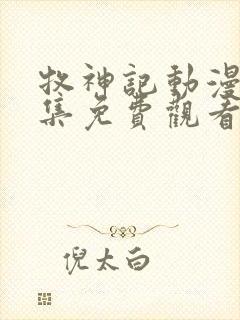 牧神記動漫
集免費觀看
倪太白